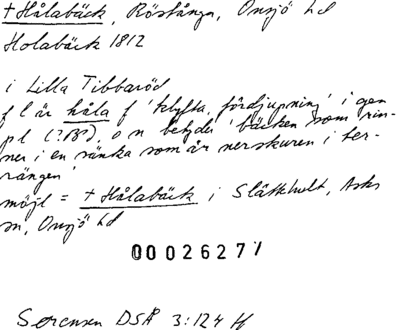 +Hålabäck, Röstånga, Onsjö hd
Holabäck 1812
i Lilla Tibbaröd
f l är håla f 'klyfta, fördjupning' i gen
pl (?B?), o n betyder 'bäcken som rin-
ner i en sänka som är nerskuren i ter-
rängen'
möjl = +Hålabäck i Slätthult, Asks
sn, Onsjö hd
00026277
Sørensen DSÅ 3:124 H